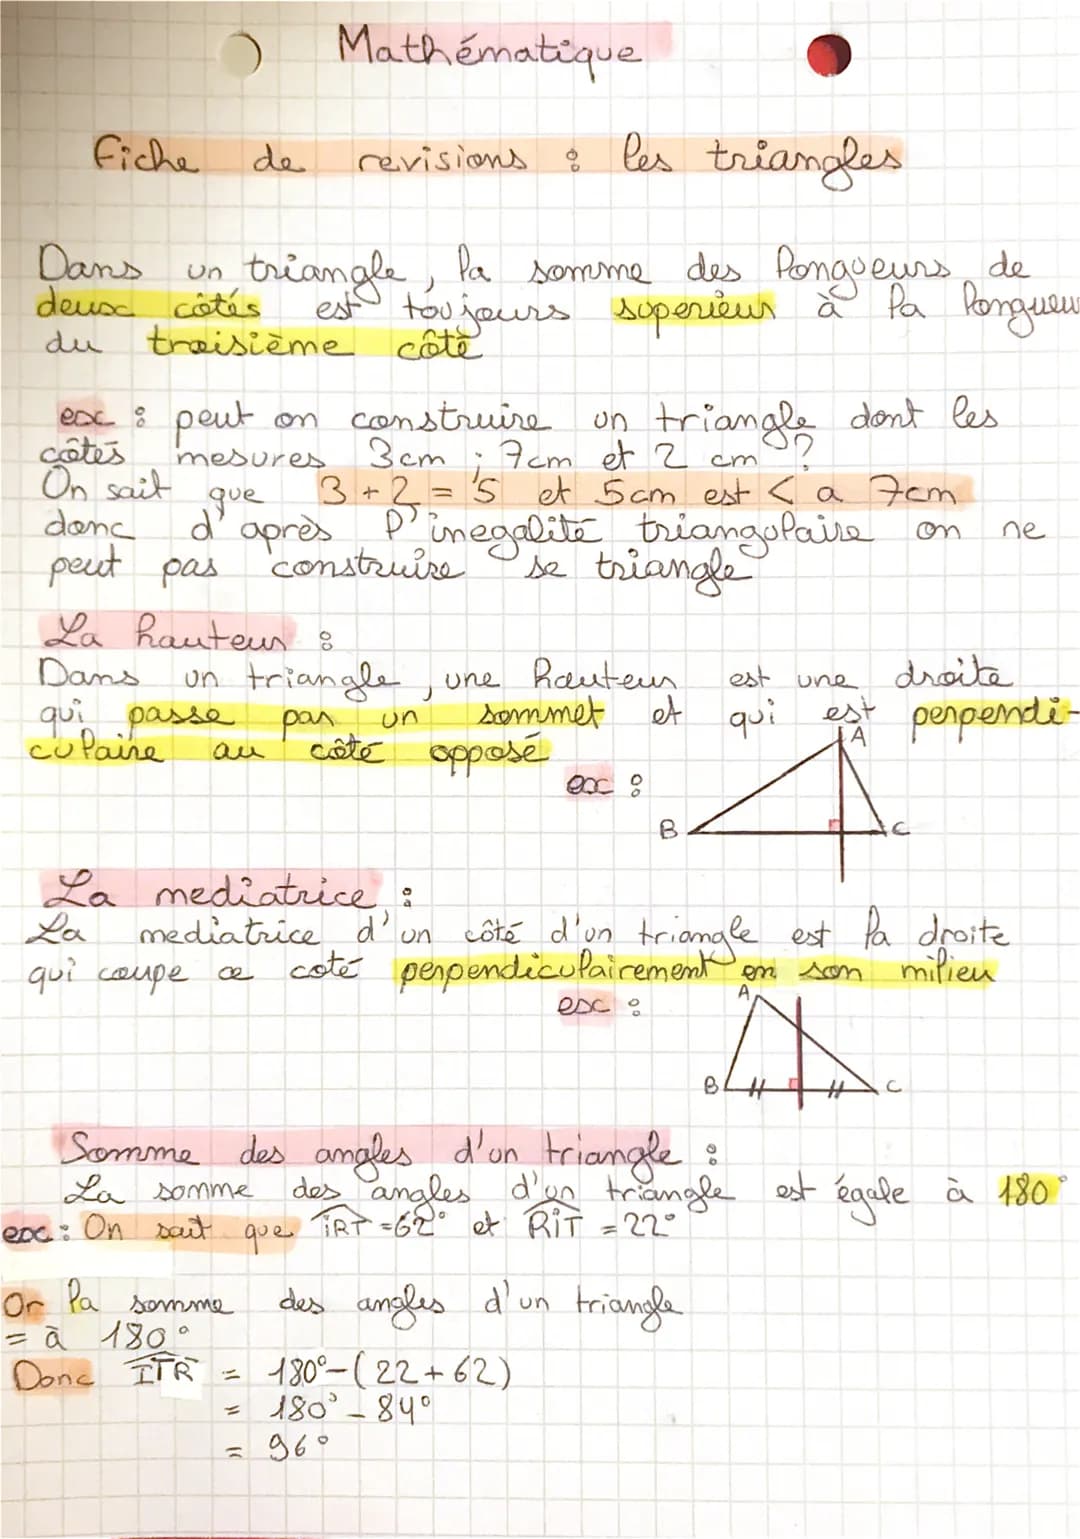 Mathématique
Fiche de revisions : les triangles
Dans un triangle, la somme des longueurs de
deux côtés est toujours superieur à la longueur
du troisième côté
ex : peut on construire un triangle dont les
côtés mesures 3cm ; 7cm et 2 cm ?
On sait que 3 + 2 = 5 et 5cm est < a 7cm
donc d'après l'inegalité triangulaire on ne
peut pas construire se triangle
La hauteur :
Dans un triangle, une hauteur est une droite
qui passe par un sommet et qui est perpendi-
culaire au côté opposé
ex :
A
B
C
La mediatrice :
La mediatrice d'un côté d'un triangle est la droite
qui coupe ce coté perpendiculairement en son milieu
ex :
A
B
C
Somme des angles d'un triangle :
La somme des angles d'un triangle est égale à 180°
ex : On sait que IRT = 62° et RIT = 22°
Or la somme des angles d'un triangle
= à 180°
Donc ITR = 180° - (22 + 62)
= 180° - 84°
= 96°